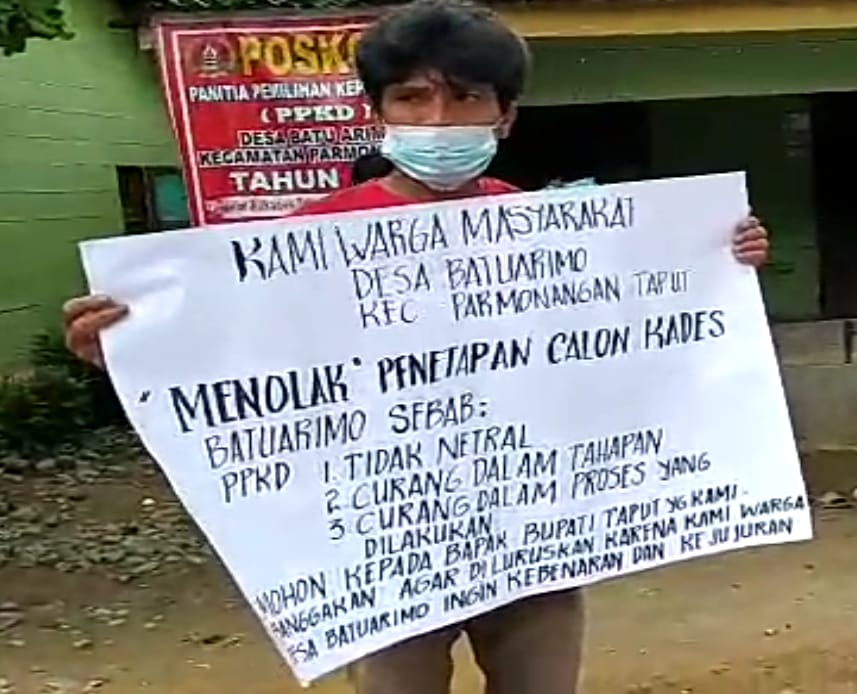 POSKO
PANITIA PEMILIHAN KEP
(PPKD)
DESA BATU ARIM
KECAMATAN PARMON
TAHUN
KAMI WARGA MASYARAKAT
DESA BATUARIMO
KEC PARMONANGAN TAPUT
"MENOLAK" PENETAPAN CALON KADES
BATUARIMO SEBAB:
PPKD 1. TIDAK NETRAL
2. CURANG DALAM TAHAPAN
3. CURANG DALAM PROSES YANG
DILAKUKAN
MOHON KEPADA BAPAK BUPATI TAPUT YG KAMI
BANGGAKAN AGAR DI LURUSKAN KARENA KAMI WARGA
DESA BATUARIMO INGIN KEBENARAN DAN KEJUJURAN